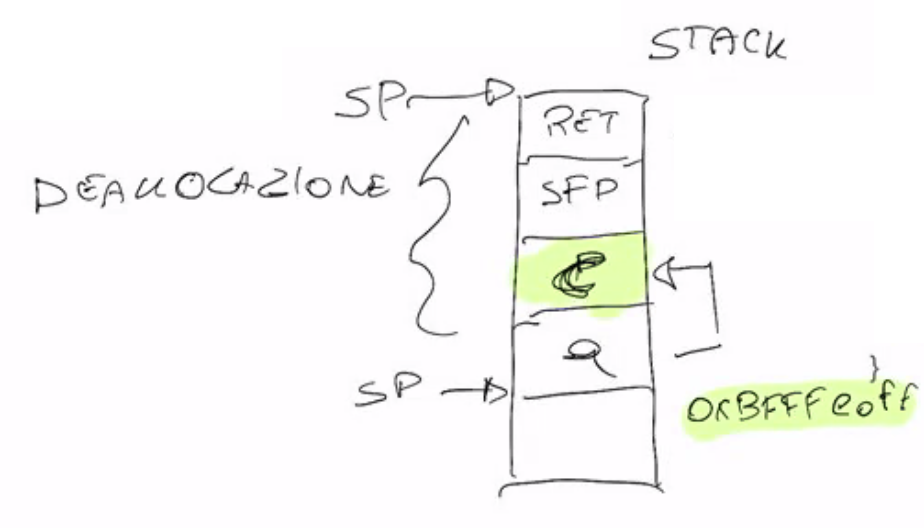 STACK
SP
RET
DEALLOCAZIONE
SFP
C
a
SP
0xBFFFe0ff